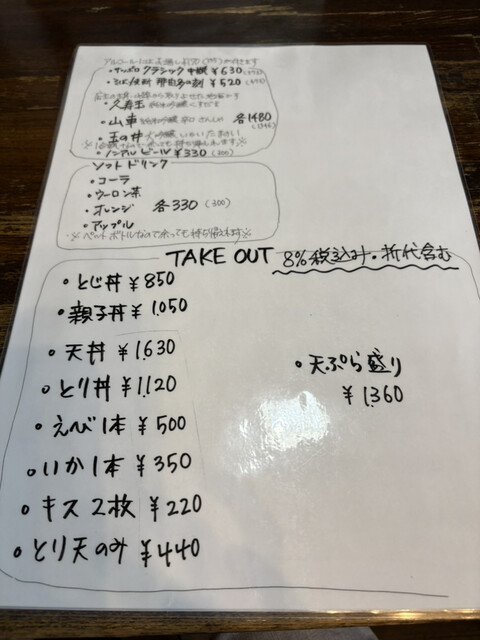 ・サッポロ クラシック 中瓶 ¥630
¥520
・久寿玉
・山車 純米吟醸 辛口 各1480
・玉の井 大吟醸
・ノンアルビール ¥330 (300)
ソフトドリンク
・コーラ
・ウーロン茶
・オレンジ 各330 (300)
・アップル
※ペットボトルなので余っても持ち帰れます※
TAKE OUT 8%税込み・折代含む
・とじ丼 ¥850
・親子丼 ¥1,050
・天丼 ¥1,630
・とり丼 ¥1,120
・えび1本 ¥500
・いか1本 ¥350
・キス2枚 ¥220
・とり天のみ ¥440
・天ぷら盛り
¥1,360